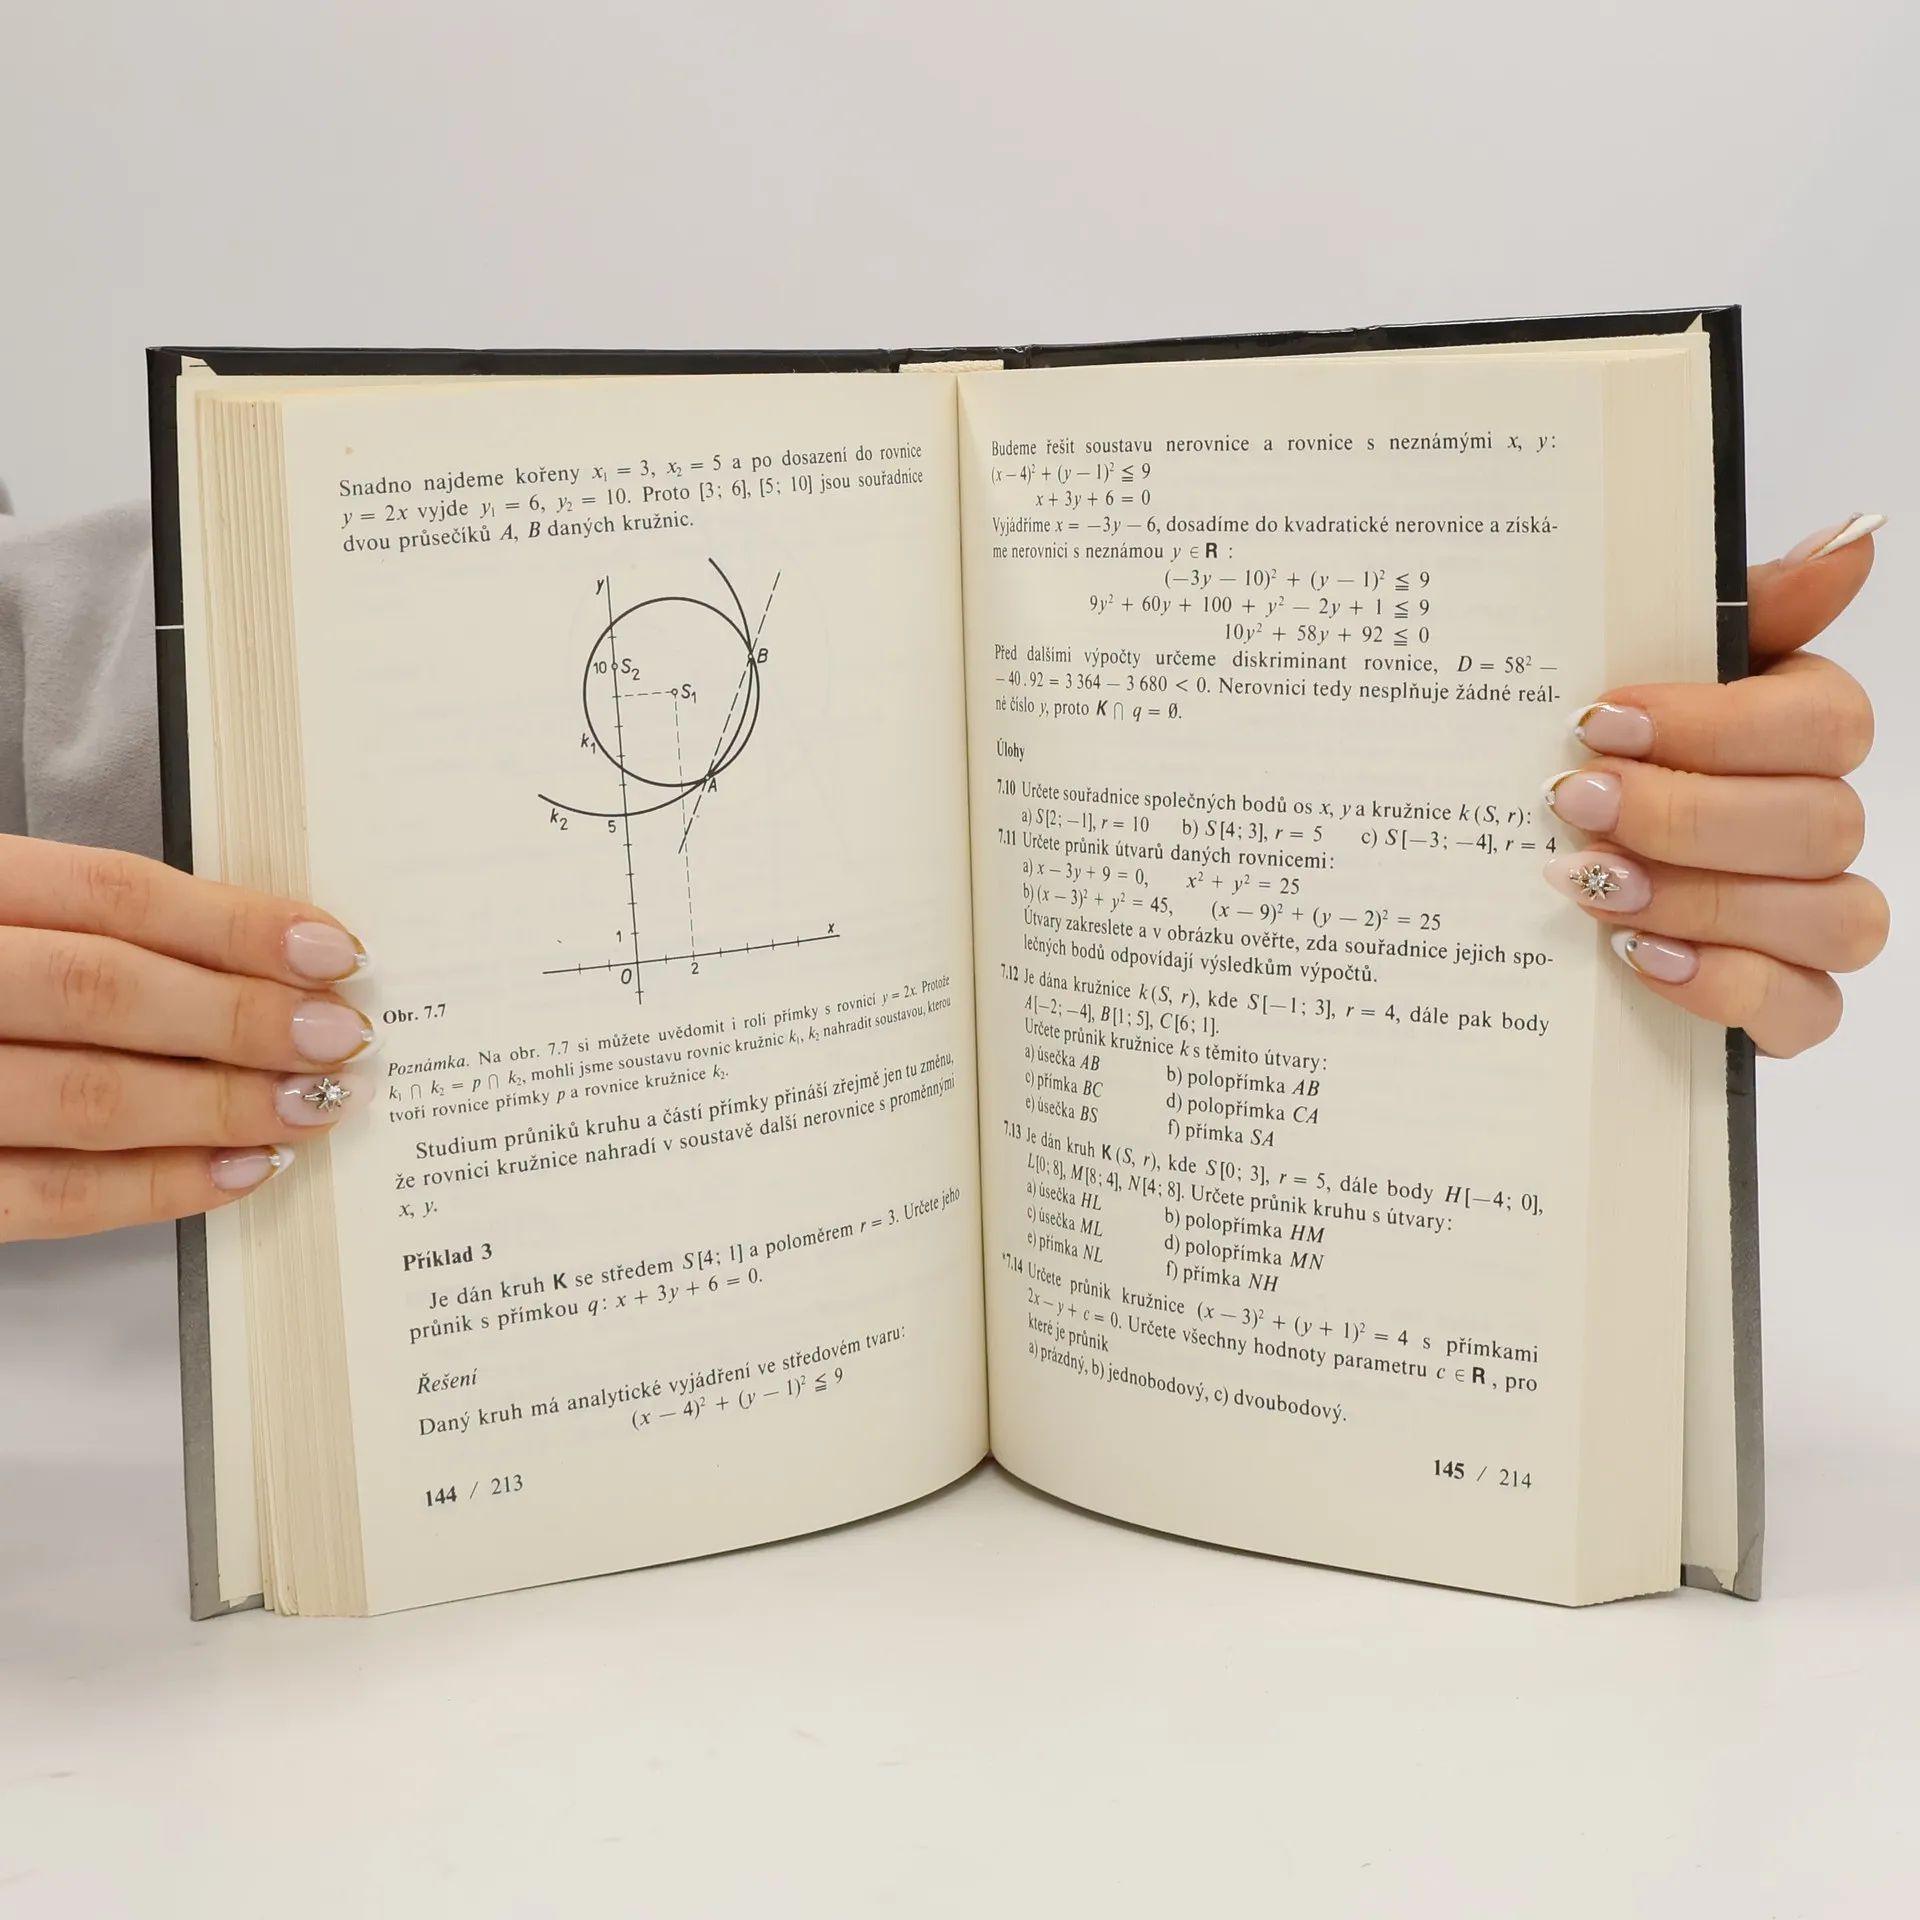 Snadno najdeme kořeny x₁ = 3, x₂ = 5 a po dosazení do rovnice
y = 2x vyjde y₁ = 6, y₂ = 10. Proto [3; 6], [5; 10] jsou souřadnice
dvou průsečíků A, B daných kružnic.
y
10 S₂
B
S₁
k₁
A
k₂
5
1
x
0
2
Obr. 7.7
Poznámka. Na obr. 7.7 si můžete uvědomit i roli přímky s rovnicí y = 2x. Protože
k₁ ⋂ k₂ = p ⋂ k₂, mohli jsme soustavu rovnic kružnic k₁, k₂ nahradit soustavou, kterou
tvoří rovnice přímky p a rovnice kružnice k₂.
Studium průniků kruhu a částí přímky přináší zřejmě jen tu změnu,
že rovnici kružnice nahradí v soustavě další nerovnice s proměnnými
x, y.
Příklad 3
Je dán kruh K se středem S[4; 1] a poloměrem r = 3. Určete jeho
průnik s přímkou q: x + 3y + 6 = 0.
Řešení
Daný kruh má analytické vyjádření ve středovém tvaru:
(x − 4)² + (y − 1)² ≦ 9
144 / 213
Budeme řešit soustavu nerovnice a rovnice s neznámými x, y:
(x − 4)² + (y − 1)² ≦ 9
x + 3y + 6 = 0
Vyjádříme x = −3y − 6, dosadíme do kvadratické nerovnice a získá-
me nerovnici s neznámou y ∈ R :
(−3y − 10)² + (y − 1)² ≦ 9
9y² + 60y + 100 + y² − 2y + 1 ≦ 9
10y² + 58y + 92 ≦ 0
Před dalšími výpočty určeme diskriminant rovnice, D = 58² −
− 40.92 = 3 364 − 3 680 < 0. Nerovnici tedy nesplňuje žádné reál-
né číslo y, proto K ⋂ q = Ø.
Úlohy
7.10 Určete souřadnice společných bodů os x, y a kružnice k (S, r):
a) S[2; −1], r = 10 b) S[4; 3], r = 5 c) S[−3; −4], r = 4
7.11 Určete průnik útvarů daných rovnicemi:
a) x − 3y + 9 = 0, x² + y² = 25
b) (x − 3)² + y² = 45, (x − 9)² + (y − 2)² = 25
Útvary zakreslete a v obrázku ověřte, zda souřadnice jejich spo-
lečných bodů odpovídají výsledkům výpočtů.
7.12 Je dána kružnice k (S, r), kde S[−1; 3], r = 4, dále pak body
A[−2; −4], B[1; 5], C[6; 1].
Určete průnik kružnice k s těmito útvary:
a) úsečka AB b) polopřímka AB
c) přímka BC d) polopřímka CA
e) úsečka BS f) přímka SA
7.13 Je dán kruh K (S, r), kde S[0; 3], r = 5, dále body H[−4; 0],
L[0; 8], M[8; 4], N[4; 8]. Určete průnik kruhu s útvary:
a) úsečka HL b) polopřímka HM
c) úsečka ML d) polopřímka MN
e) přímka NL f) přímka NH
*7.14 Určete průnik kružnice (x − 3)² + (y + 1)² = 4 s přímkami
2x − y + c = 0. Určete všechny hodnoty parametru c ∈ R , pro
které je průnik
a) prázdný, b) jednobodový, c) dvoubodový.
145 / 214